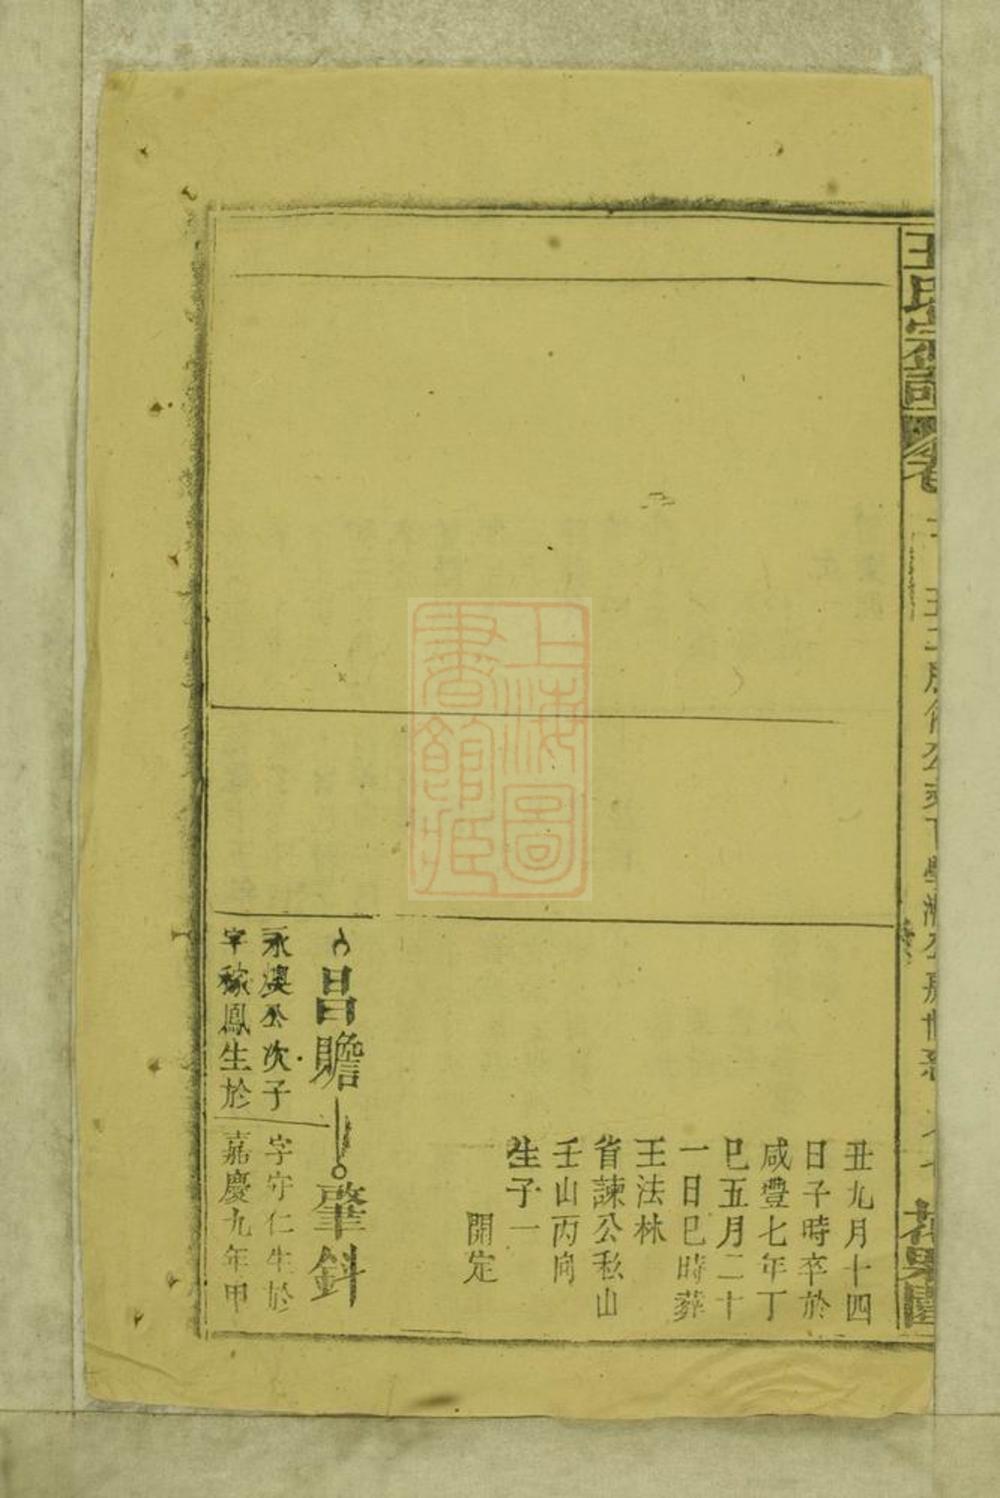 王氏宗譜
丑九月十四
日子時卒於
咸豐七年丁
巳五月二十
一日巳時葬
王法林
省諫公私山
壬山丙向
生子一
一 開定
昌贍
肇斜
永燠公次子
字稼鳳生於
字守仁生於
嘉慶九年甲
上海圖書館藏